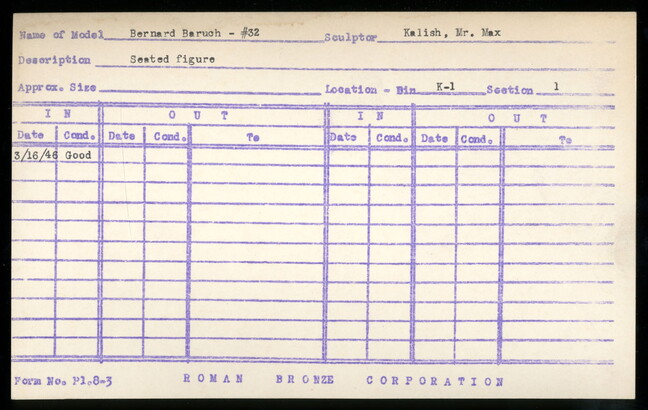 Name of Model Bernard Baruch - #32 Sculptor Kalish, Mr. Max
Description Seated figure
Approx. Size Location - Bin K-1 Section 1
IN OUT IN OUT
Date Cond. Date Cond. To Date Cond. Date Cond. To
3/16/46 Good
Form No. P1.8-3 ROMAN BRONZE CORPORATION